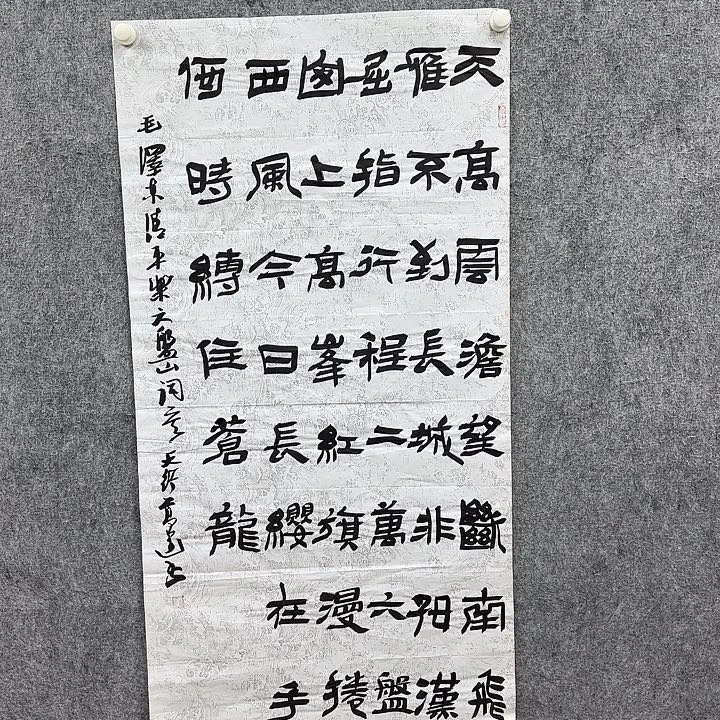 天高雲澹望斷南飛
雁不到長城非好漢
屈指行程二萬六盤
山上高峯紅旗漫捲
西風今日長纓在手
何時縛住蒼龍
毛澤東清平樂六盤山詞